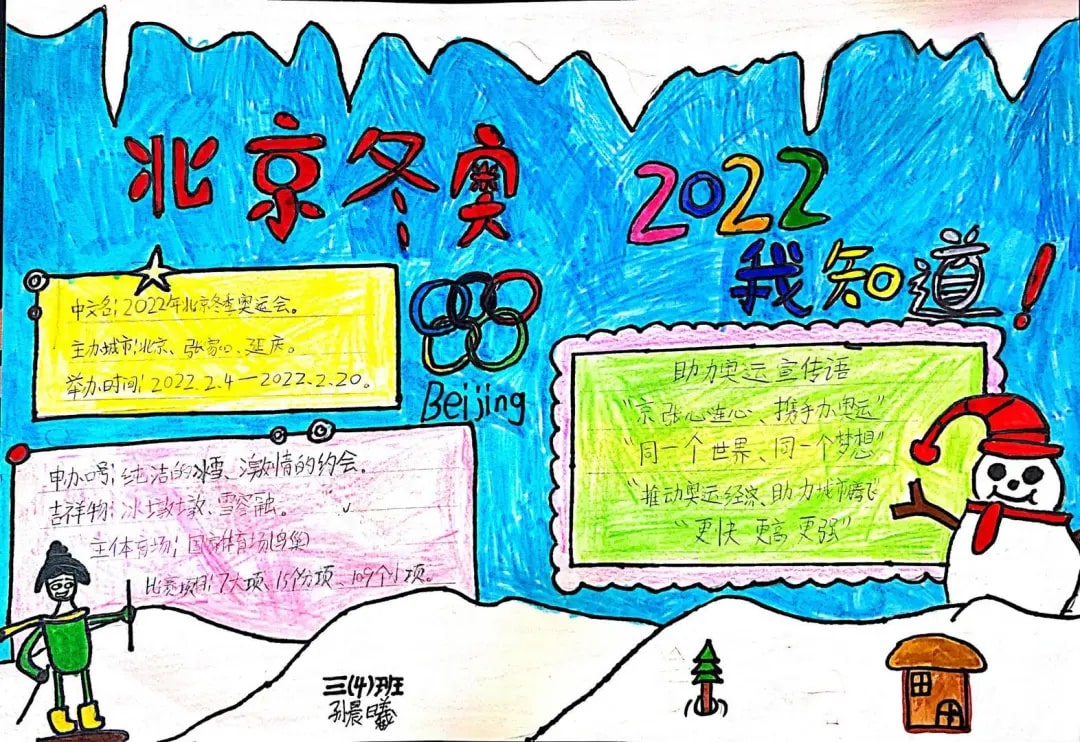 北京冬奥
2022
我知道!
中文名:2022年北京冬季奥运会。
主办城市:北京、张家口、延庆。
举办时间:2022.2.4—2022.2.20。
Beijing
申办口号:纯洁的冰雪、激情的约会。
吉祥物:冰墩墩、雪容融。
主体育场:国家体育场(鸟巢)
比赛项目:7大项、15份项、109个小项。
助力奥运宣传语
“京张心连心、携手办奥运”
“同一个世界、同一个梦想”
“推动奥运经济、助力城市腾飞”
“更快 更高 更强”
三(4)班
孙晨曦